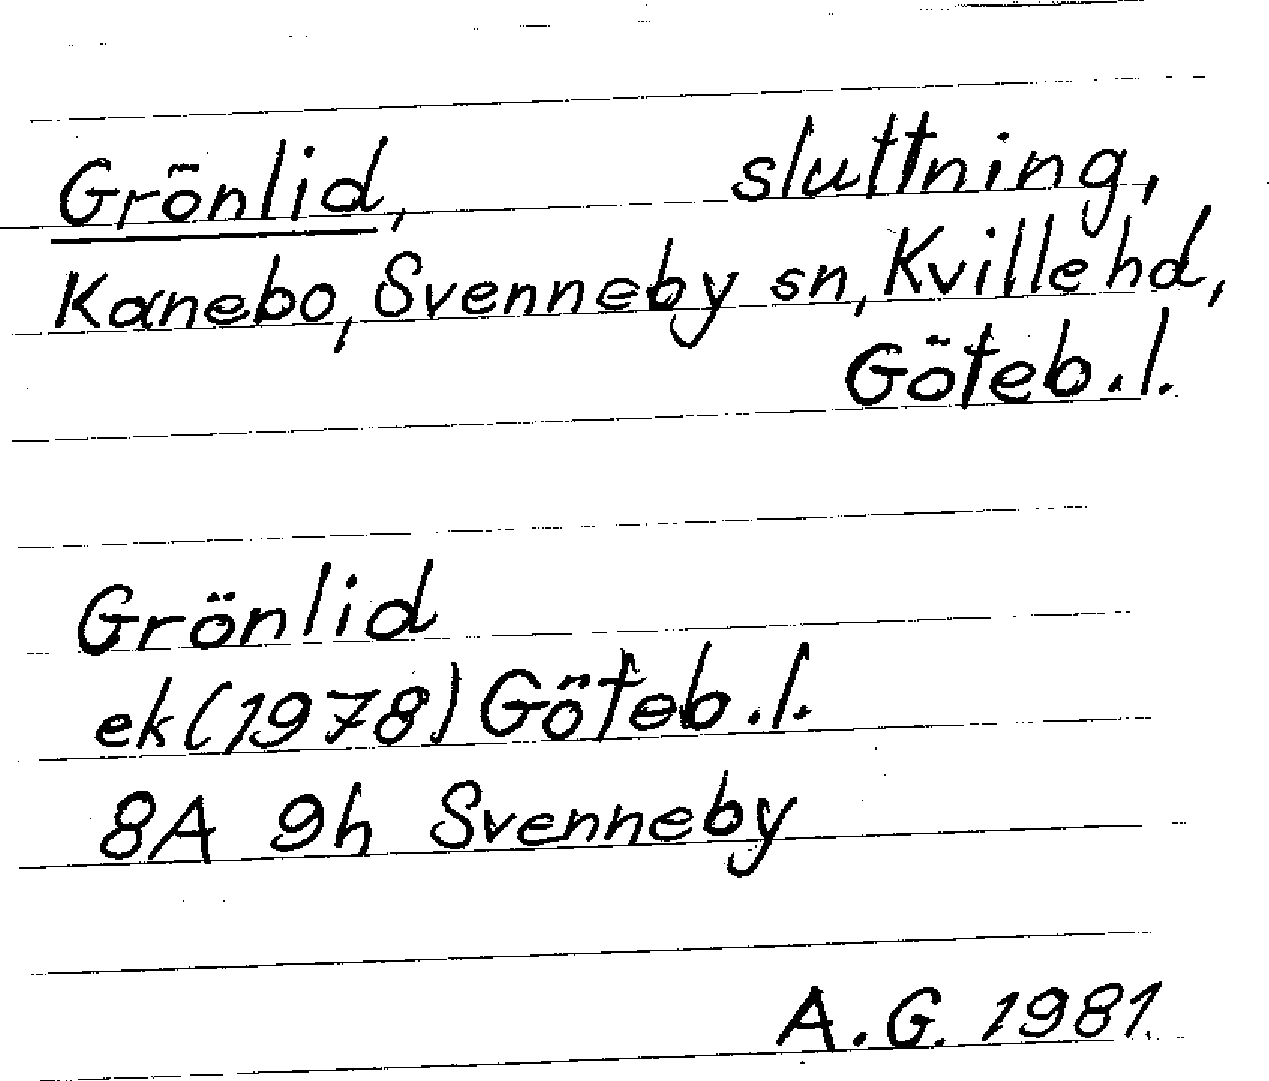 Grönlid, sluttning,
Kanebo, Svenneby sn, Kville hd,
Göteb. l.
Grönlid
ek (1978) Göteb. l.
8A 9h Svenneby
A. G. 1981.